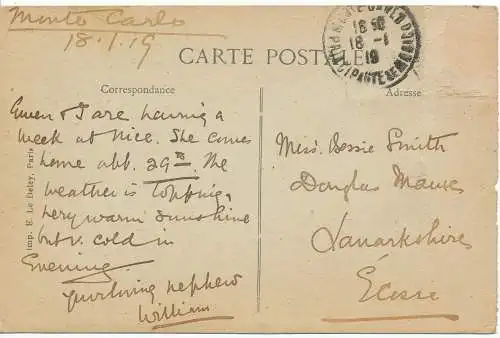 Monte Carlo
18.1.19
CARTE POSTALE
MONTE-CARLO
18 30
18 -1
19
PRINCIPAUTE DE MONACO
Correspondance
Adresse
Gwen & I are having a
week at Nice. She comes
home abt. 29th. The
weather is topping,
very warm sunshine
but v. cold in
Evening.
Your loving nephew
William
Miss. Bessie Smith
Douglas
Lanarkshire
Écosse
Imp. E. Le Deley, Paris